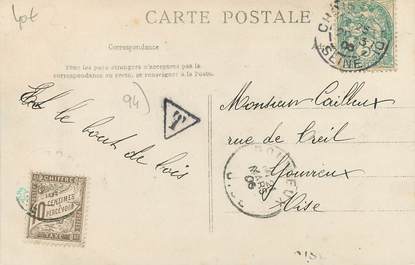 40€
CARTE POSTALE
Correspondance
Tous les pays étrangers n'acceptent pas la
correspondance au recto, se renseigner à la Poste.
94)
T
Et le bout de bois
Monsieur Cailleux
rue de Creil
Gouvieux
Oise
CHIFFRE
10 CENTIMES
À PERCEVOIR
TAXE
MARS
06
OISE